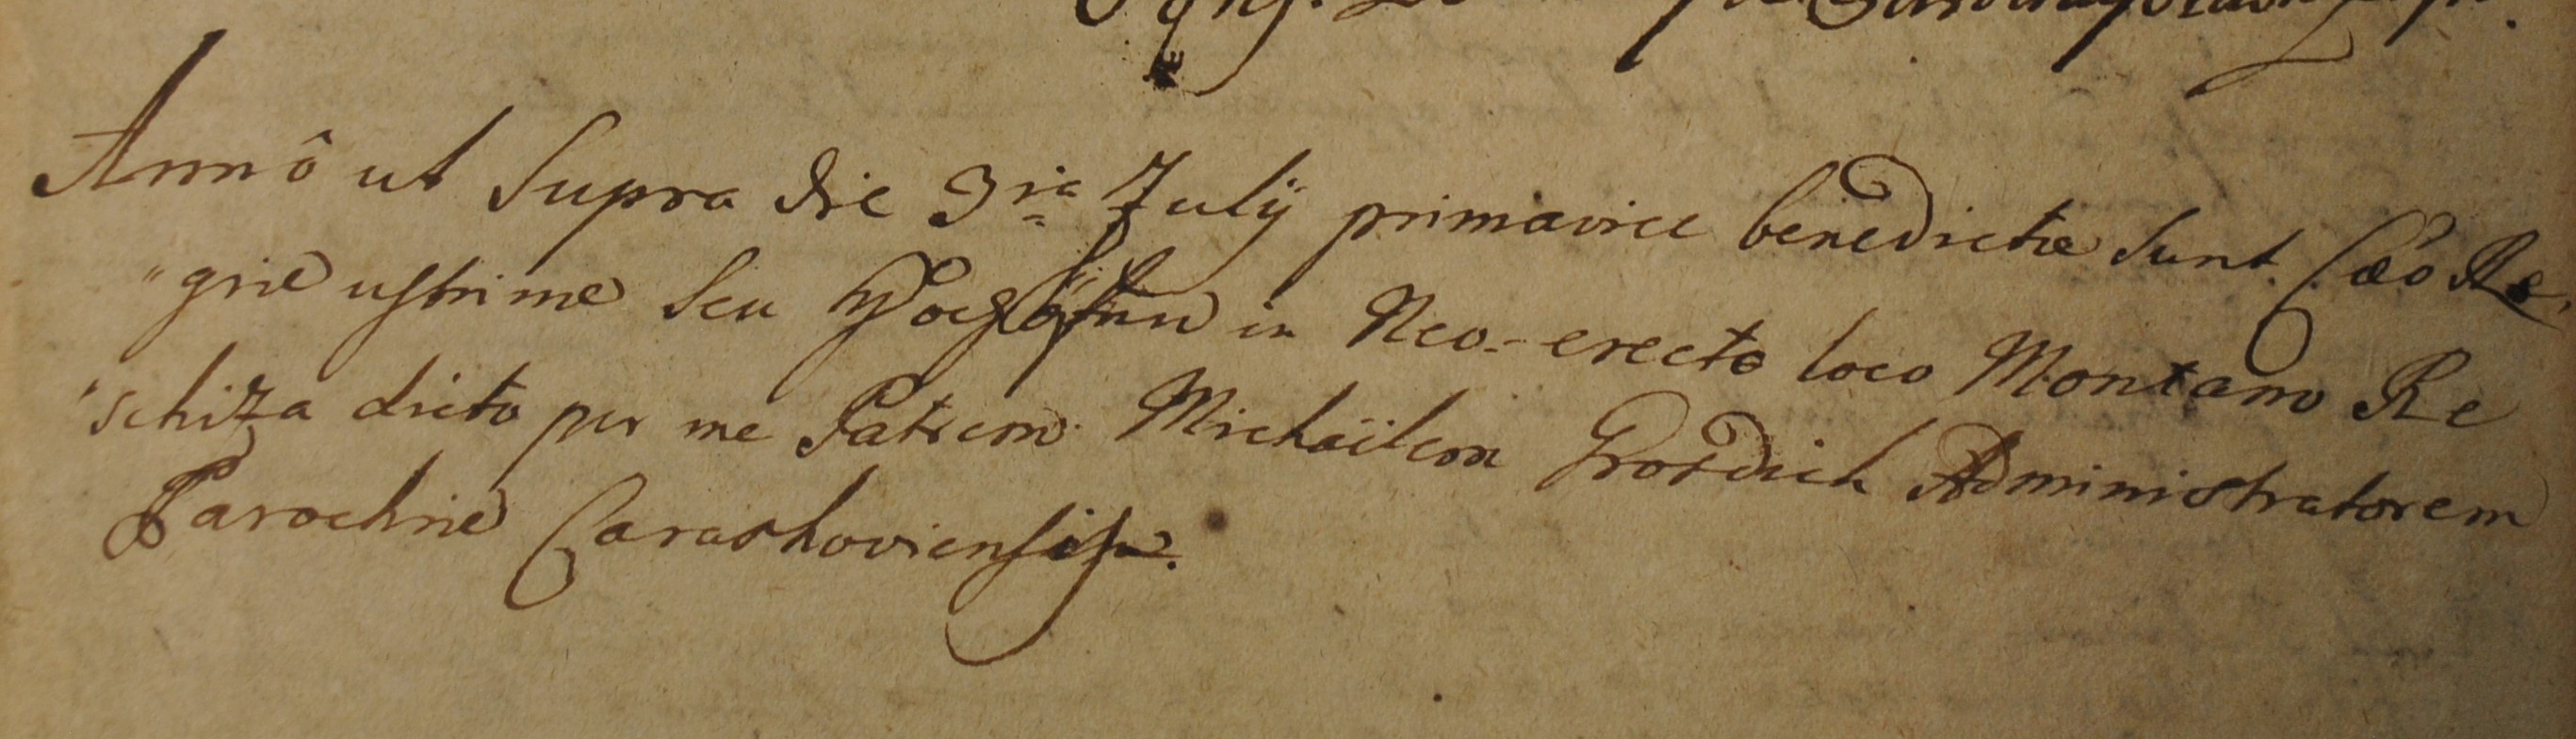 Annô ut Supra die 3ia Julÿ primavice benedictæ sunt Cæo Re,
"giæ ustrinæ seu in Neo-erecto loco Montano Re
"schiza dicto per me Patrem Michaëlem Administratorem
Parochiæ Carashoviensis.